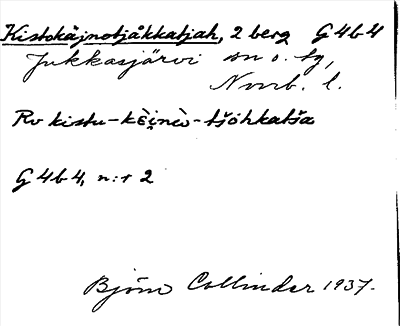 Kistokåjnotjåkkatjah, 2 berg G4b4
Jukkasjärvi sn o. tg,
Norrb. l.
Rv kistu-kèi̯nò-tšòhkatša
G4b4, n:r 2
Björn Collinder 1937.